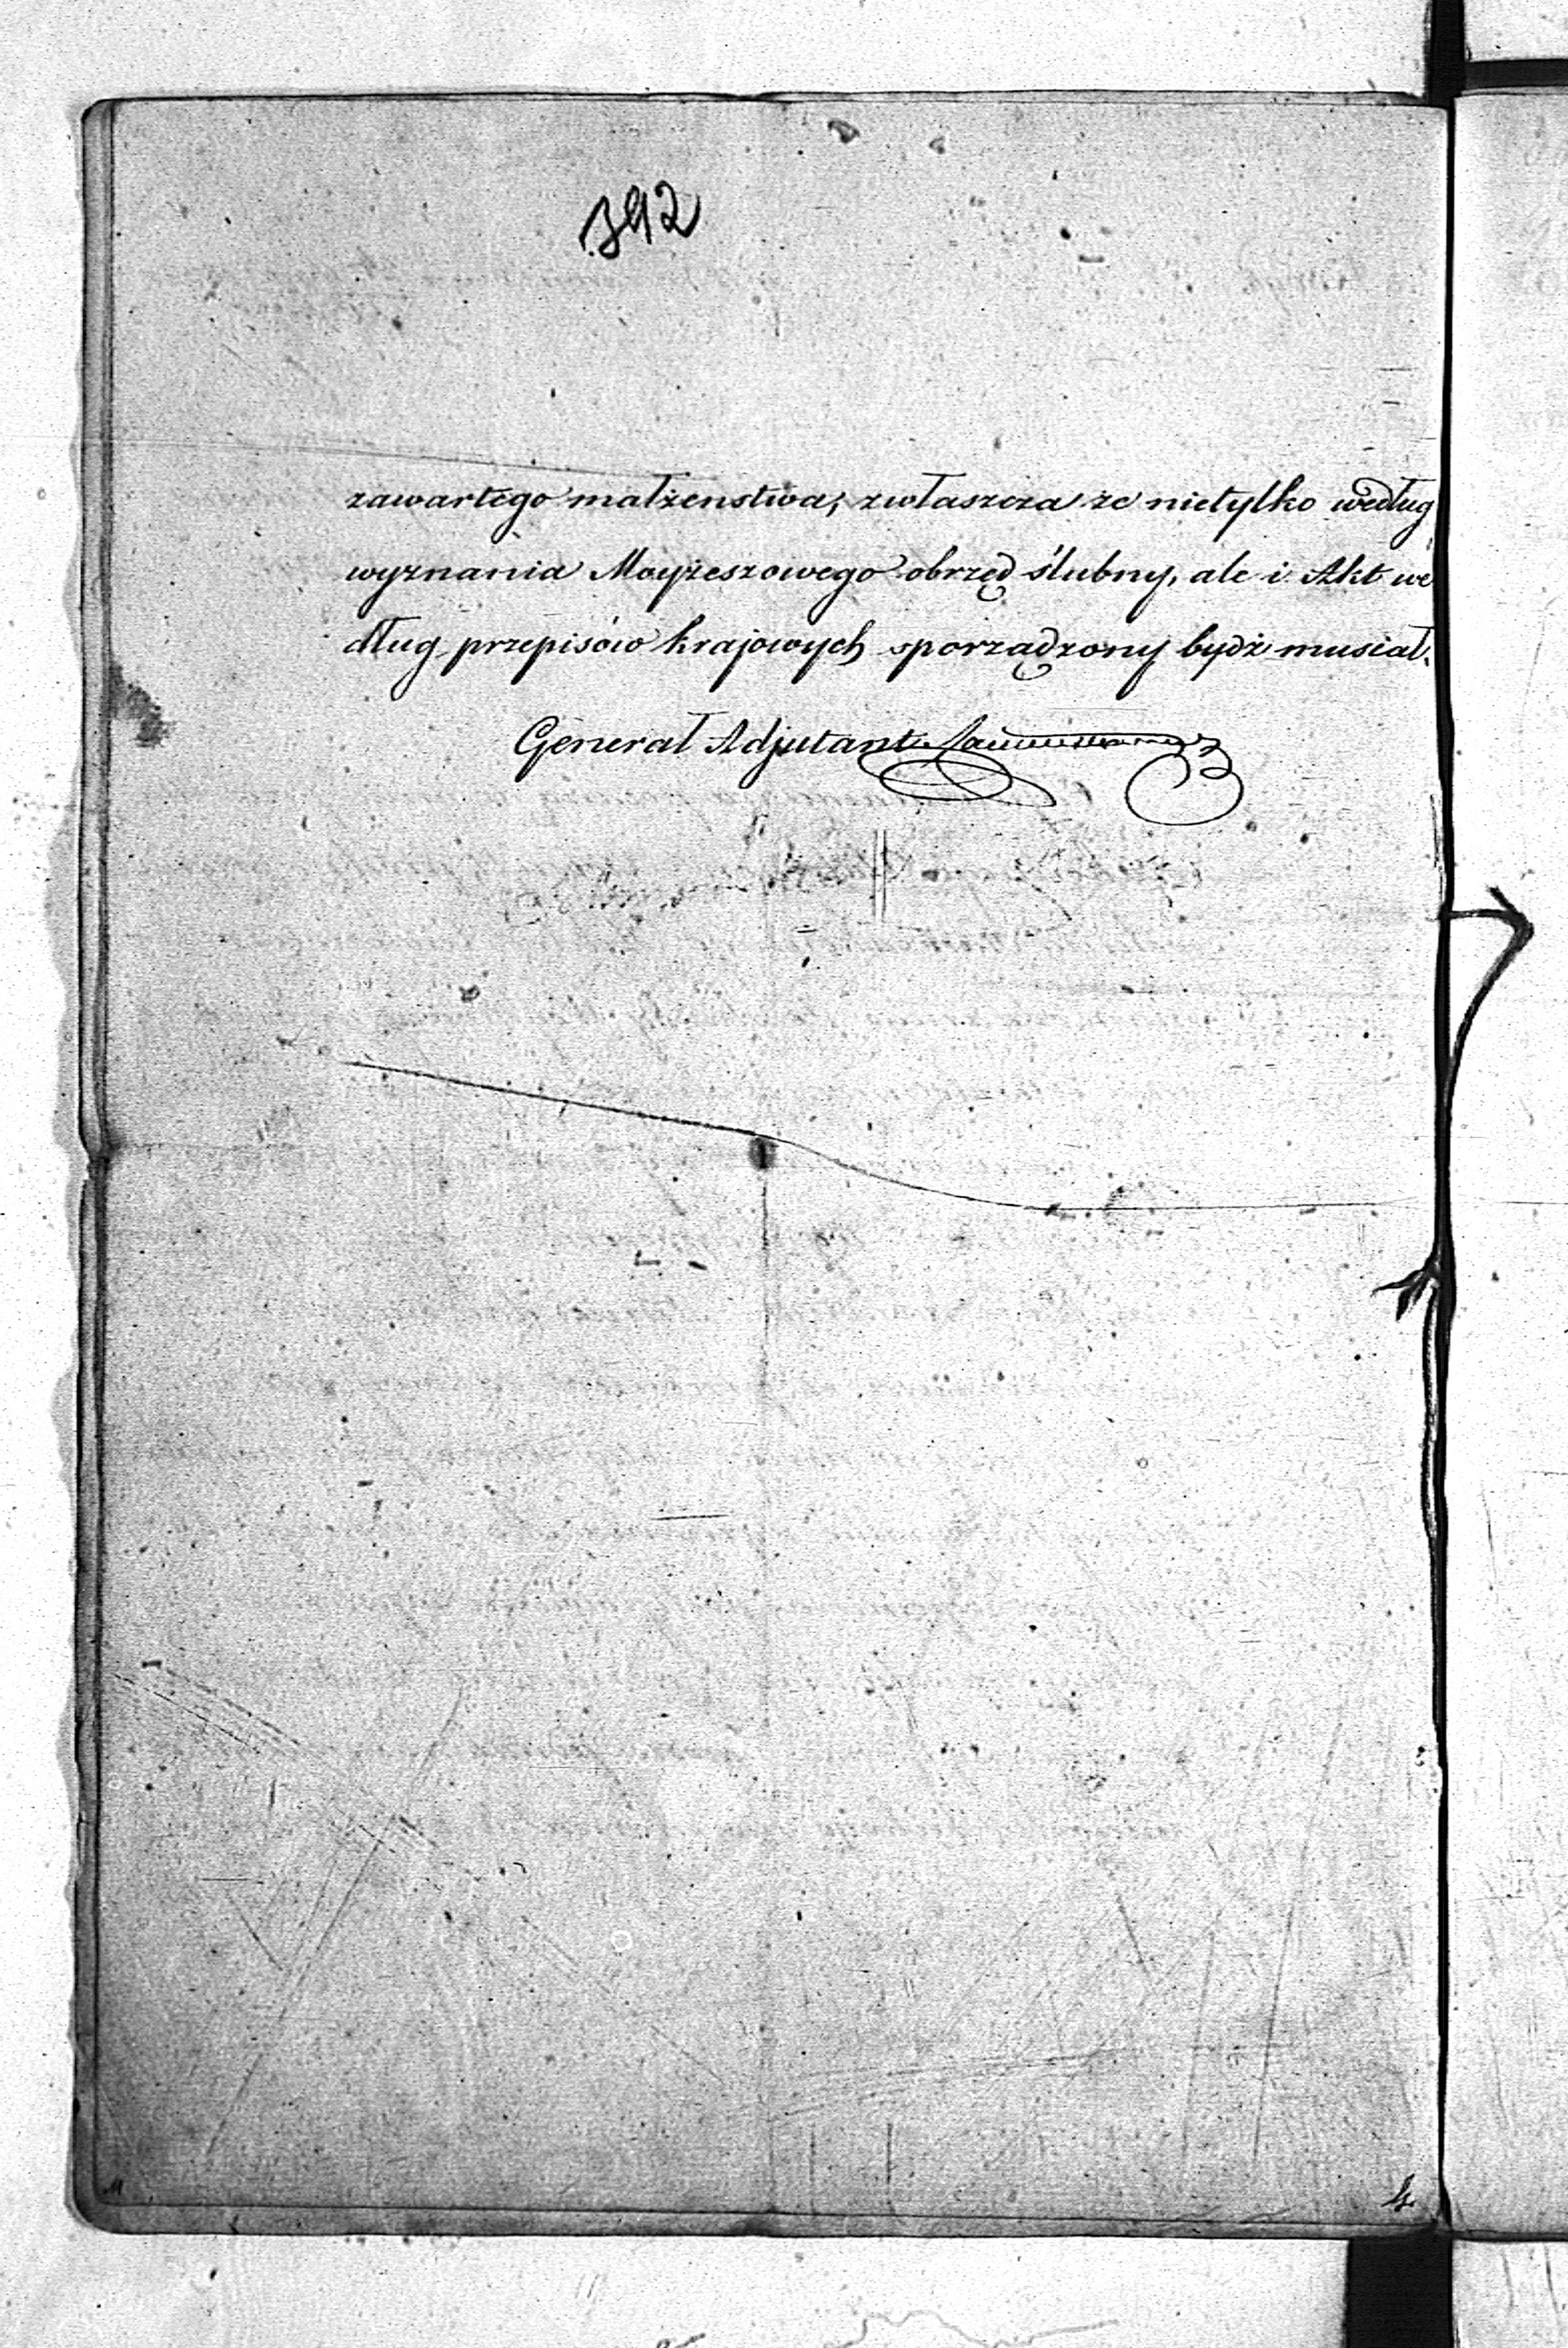 392
zawartego małżenstwa, zwłaszcza że nietylko według
wyznania Moyżeszowego obrzęd ślubny, ale i Akt we
dług przepisów krajowych sporządzony bydź musiał.
Generał Adjutant